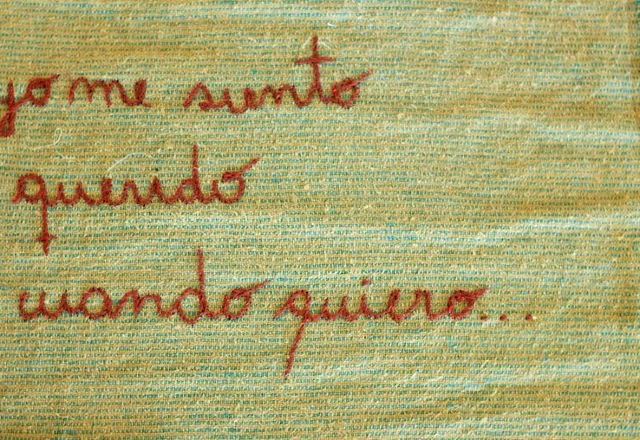 yo me siento
querido
cuando quiero...